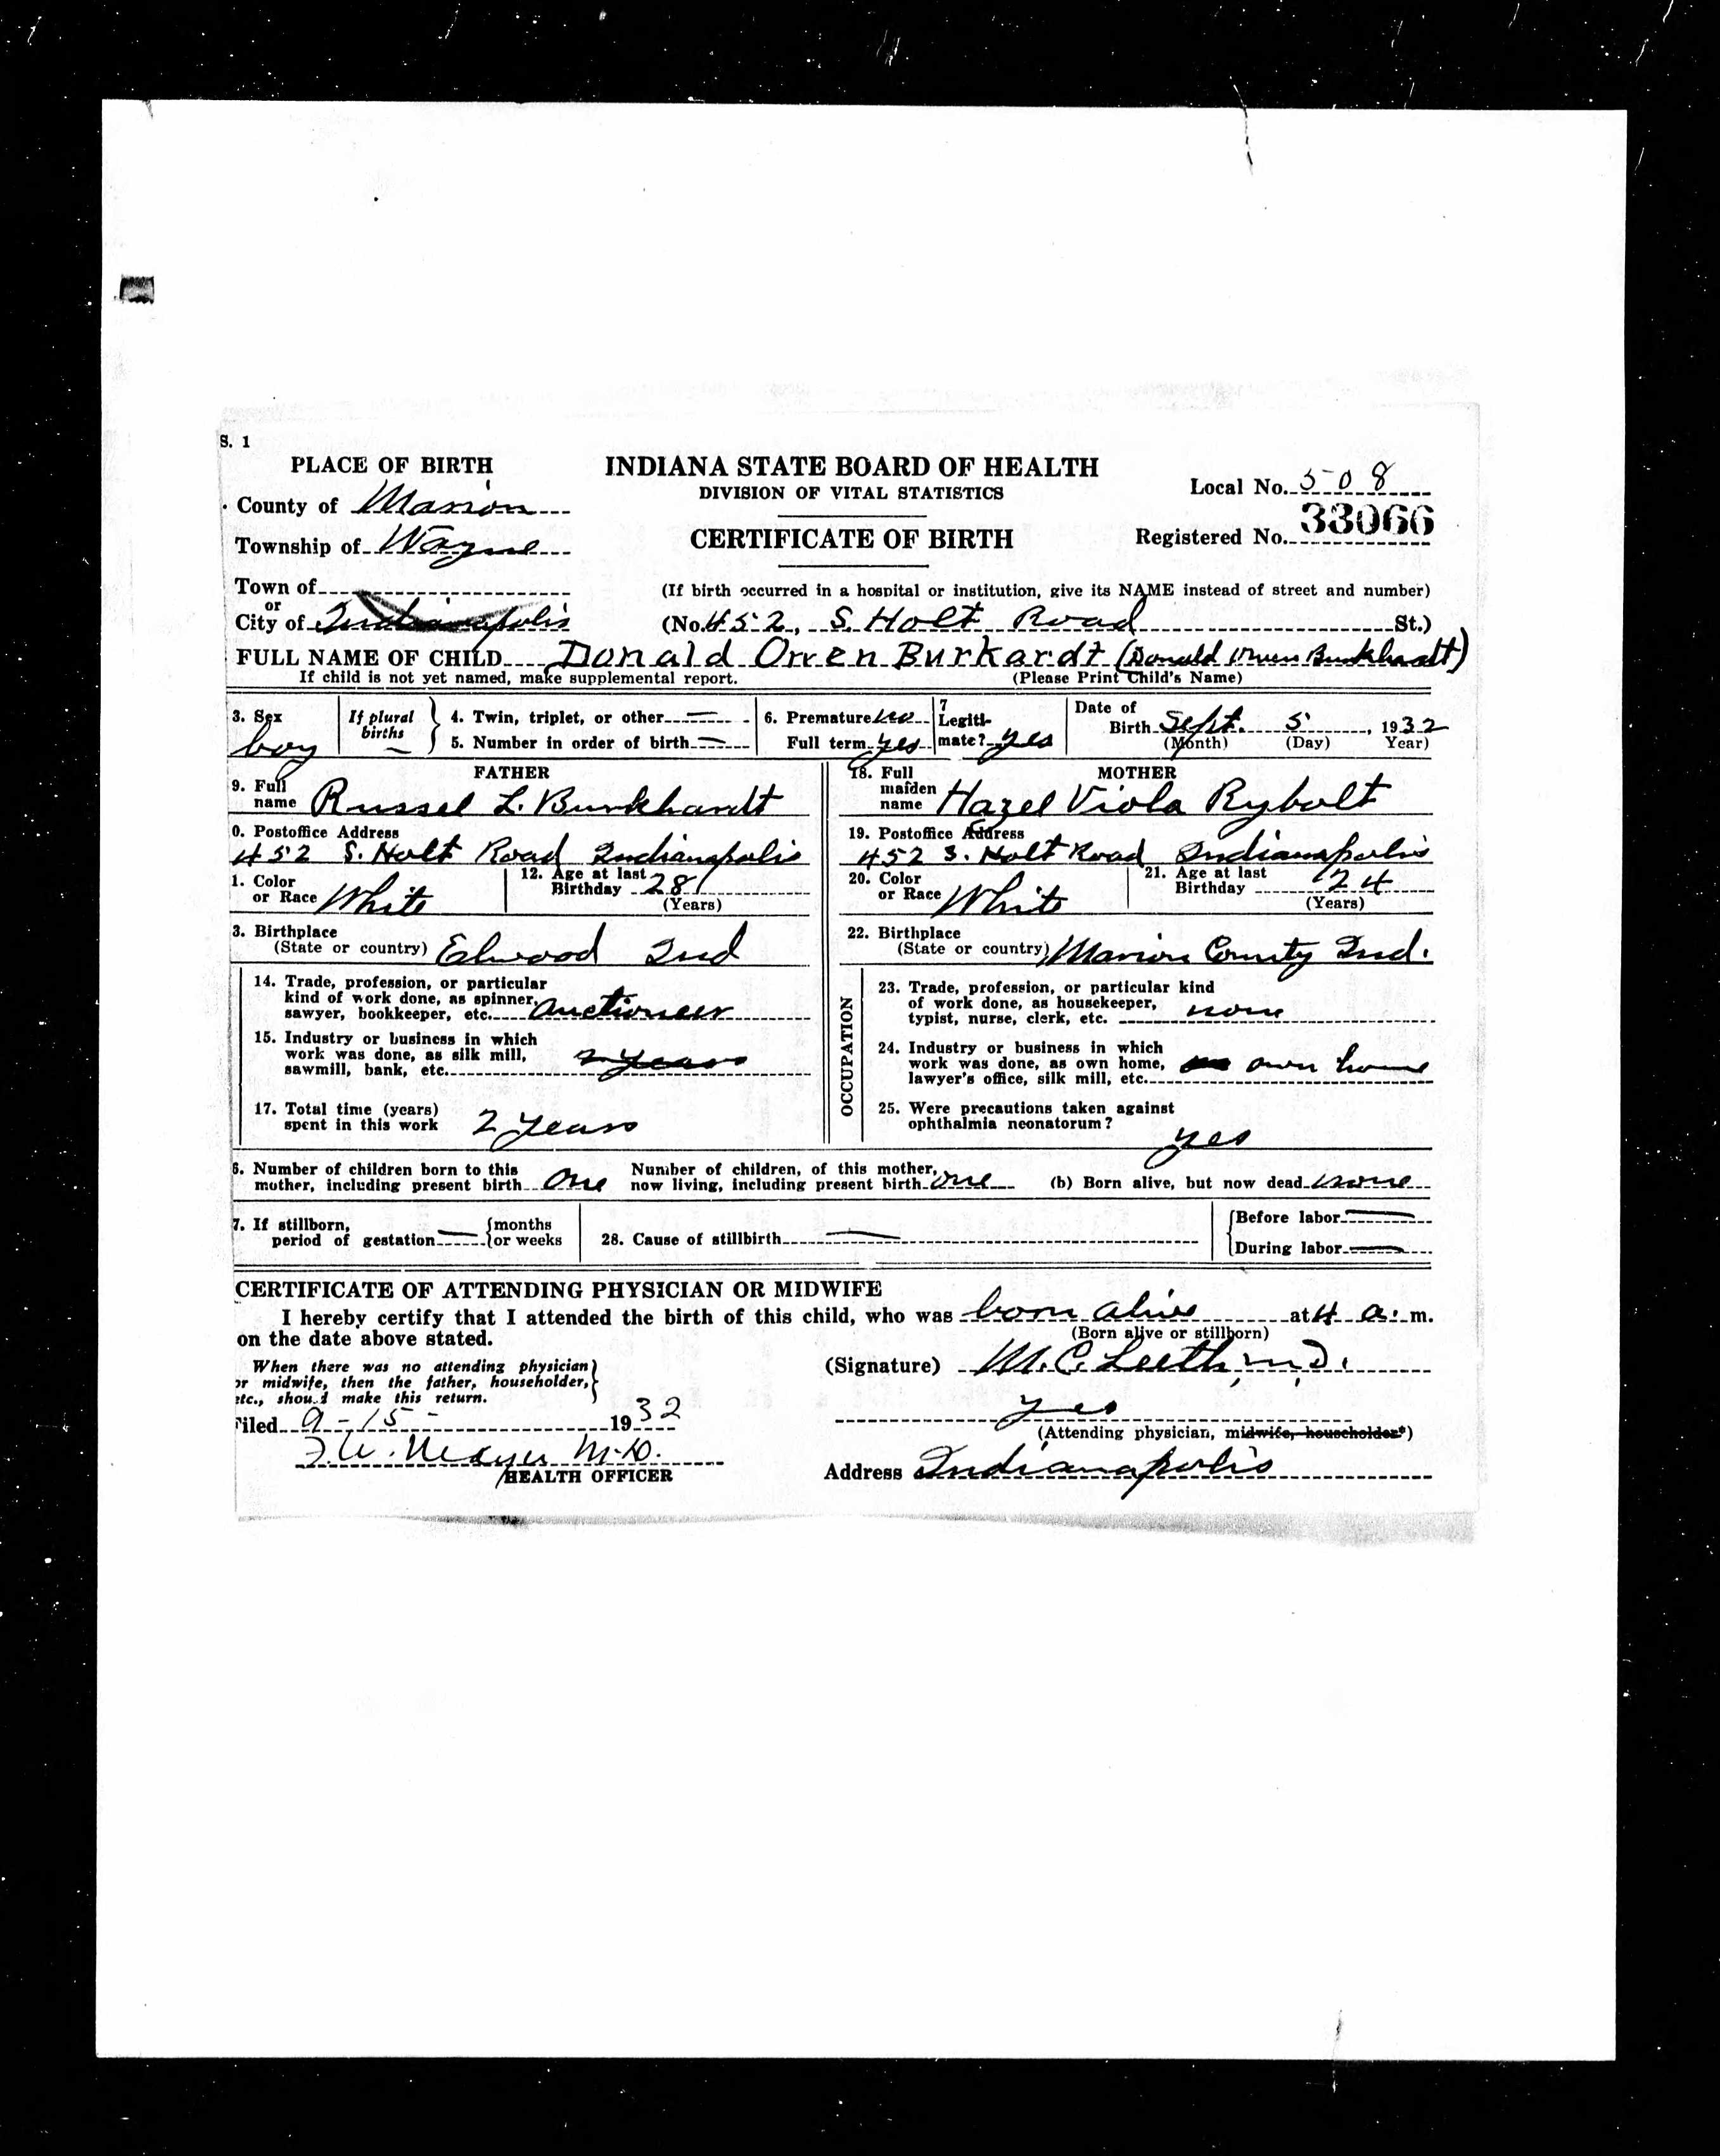 S. 1
PLACE OF BIRTH
County of Marion
Township of Wayne
Town of
or
City of Indianapolis
INDIANA STATE BOARD OF HEALTH
DIVISION OF VITAL STATISTICS
CERTIFICATE OF BIRTH
Local No. 508
Registered No. 33066
(If birth occurred in a hospital or institution, give its NAME instead of street and number)
(No. 452, S. Holt Road St.)
FULL NAME OF CHILD Donald Orren Burkardt (Donald Burkhardt)
If child is not yet named, make supplemental report.
(Please Print Child's Name)
3. Sex boy
If plural births —
4. Twin, triplet, or other —
5. Number in order of birth —
6. Premature no
Full term yes
7 Legiti-
mate? yes
Date of
Birth Sept. 5, 1932
(Month) (Day) Year)
FATHER
9. Full
name Russel L. Burkhardt
0. Postoffice Address
452 S. Holt Road Indianapolis
1. Color
or Race White
12. Age at last
Birthday 28
(Years)
3. Birthplace
(State or country) Elwood Ind
14. Trade, profession, or particular
kind of work done, as spinner,
sawyer, bookkeeper, etc. Auctioneer
15. Industry or business in which
work was done, as silk mill,
sawmill, bank, etc. 2 years
17. Total time (years)
spent in this work 2 years
MOTHER
18. Full
maiden
name Hazel Viola Rybolt
19. Postoffice Address
452 S. Holt Road Indianapolis
20. Color
or Race White
21. Age at last
Birthday 24
(Years)
22. Birthplace
(State or country) Marion County Ind.
OCCUPATION
23. Trade, profession, or particular kind
of work done, as housekeeper,
typist, nurse, clerk, etc. none
24. Industry or business in which
work was done, as own home,
lawyer's office, silk mill, etc. own home
25. Were precautions taken against
ophthalmia neonatorum? yes
6. Number of children born to this
mother, including present birth One
Number of children, of this mother,
now living, including present birth One
(b) Born alive, but now dead none
7. If stillborn,
period of gestation — {months
or weeks
28. Cause of stillbirth —
Before labor —
During labor —
CERTIFICATE OF ATTENDING PHYSICIAN OR MIDWIFE
I hereby certify that I attended the birth of this child, who was born alive at 4 a. m.
(Born alive or stillborn)
on the date above stated.
When there was no attending physician
or midwife, then the father, householder,
etc., should make this return.
Filed 9-15- 1932
M.D.
HEALTH OFFICER
(Signature) M. C. Leeth, M.D.
yes
(Attending physician, midwife, householder*)
Address Indianapolis